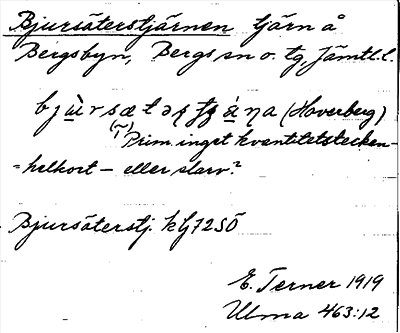 Bjursäterstjärnen tjärn å
Bergsbyn, Bergs sn o. tg, Jämtl. l.
(Hoverberg)
Prim. inget kvantitetstecken-
=helkort – eller slarv?
Bjursäterstj. kbl 72 SÖ
E. Terner 1919
Ulma 463:12